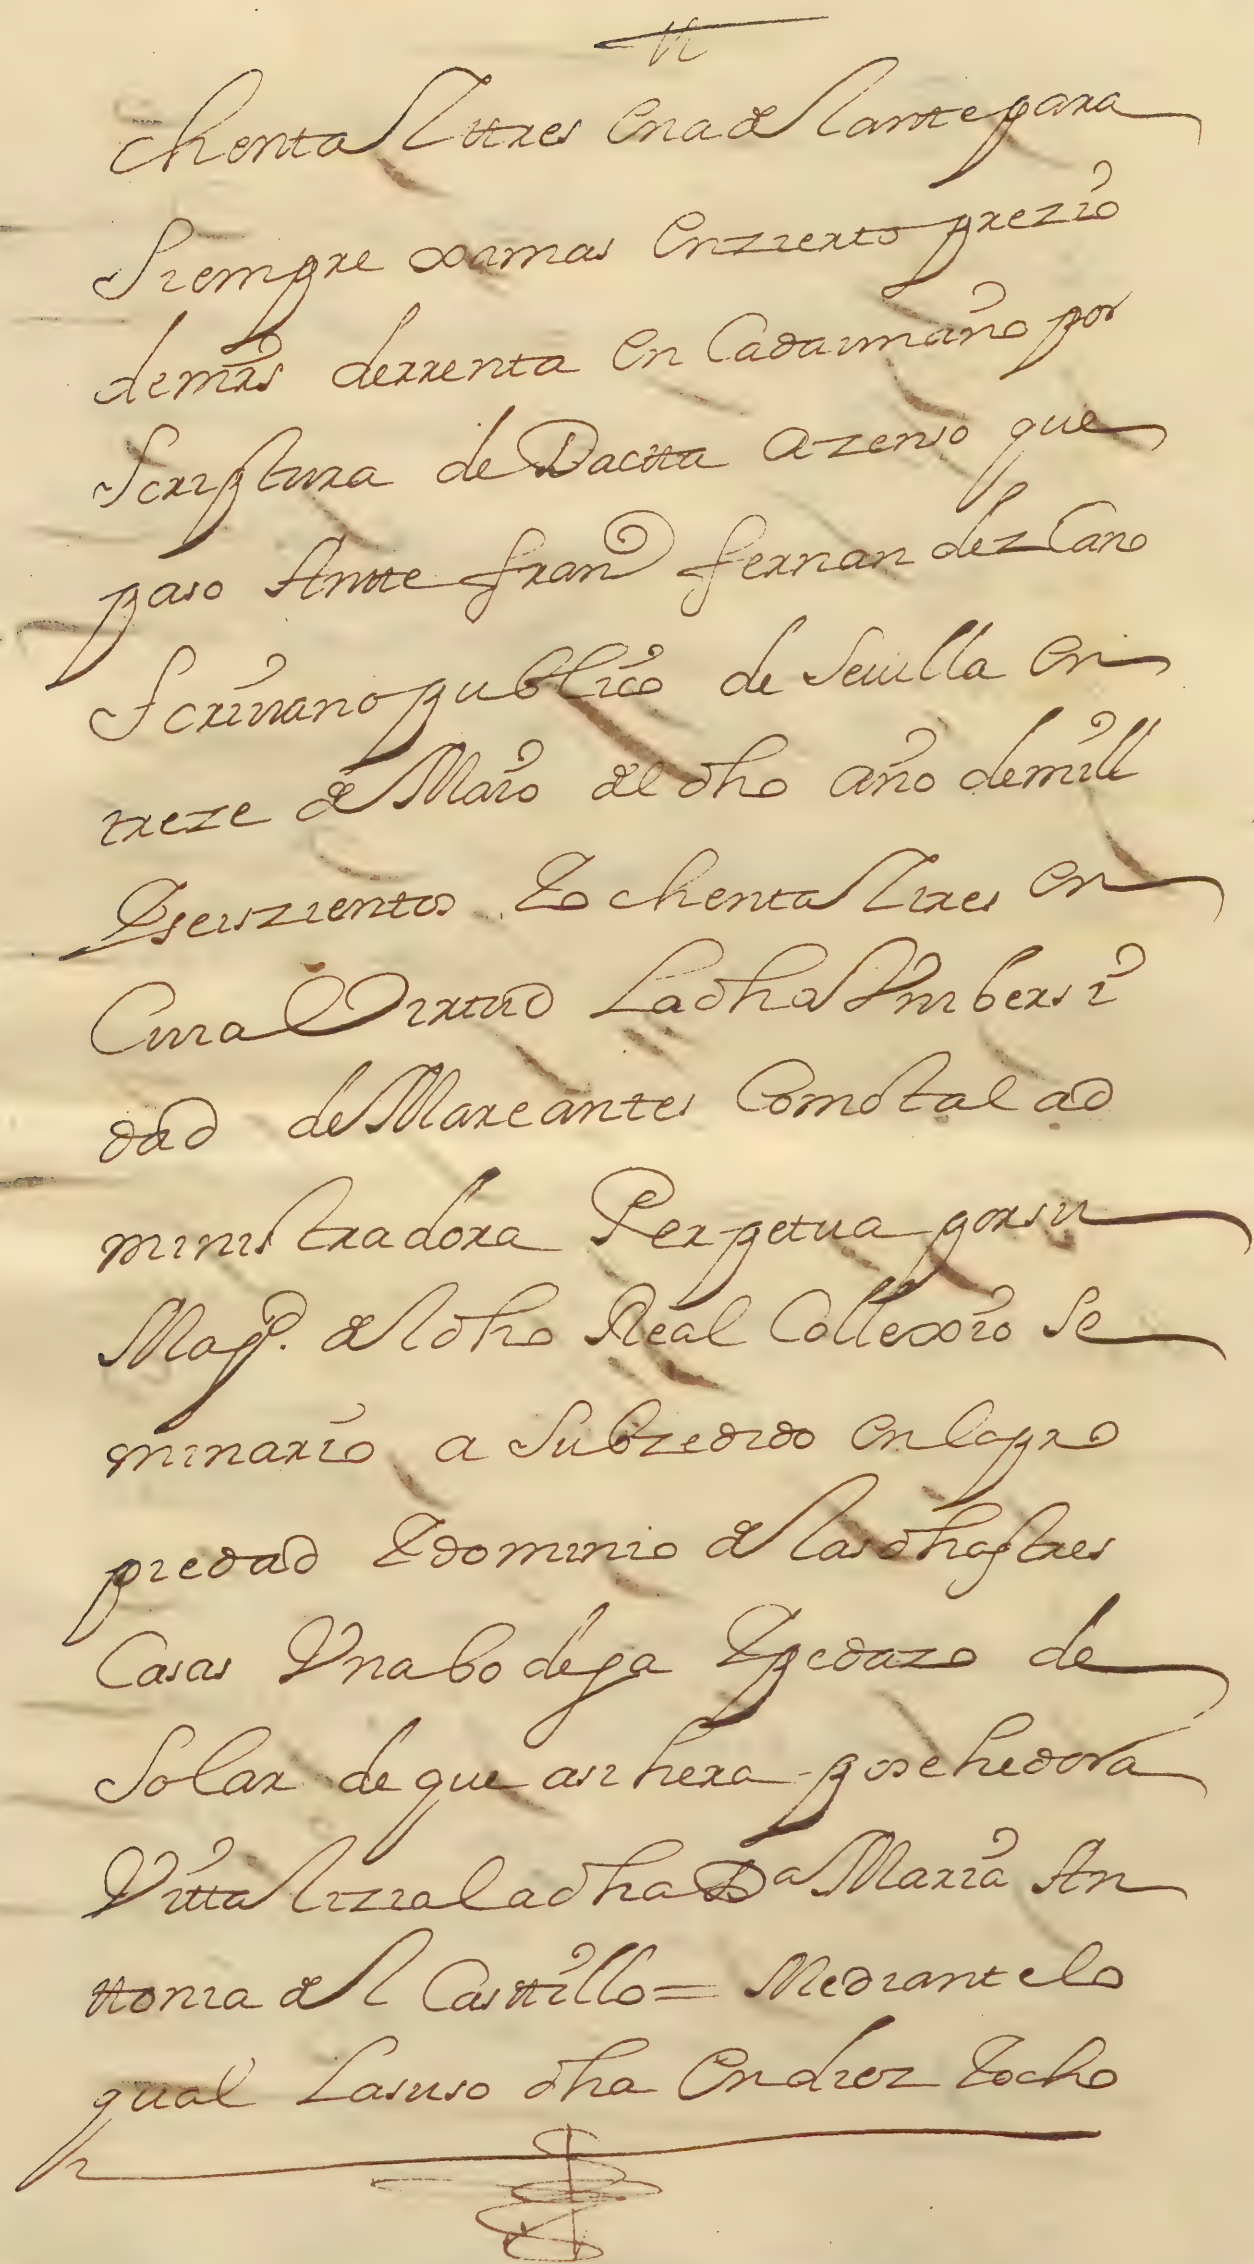 chenta Ytres en adelante para
Siempre xamas en zierto prezio
de mrs de rrenta en Cada un año por
Scriptura de Dacta a zenso que
paso Antte fran.co fernandez Cano
Scriuano publico de Seuilla en
treze de Maio del dho año de mill
Y seiszientos Y ochenta Y tres en
Cuia Virtud La dha Vnibersi
dad de Mareantes Como tal ad
ministradora Perpetua por su
Magd. del dho Real Collexio Se
minario a Subzedido en la pro
piedad Y dominio de las dhas tres
Casas Vna bodega Y pedazo de
Solar de que asi hera posehedora
Vitta lizia la dha Da Maria An
ttonia del Casttillo = Mediante lo
qual La suso dha en diez Y ocho